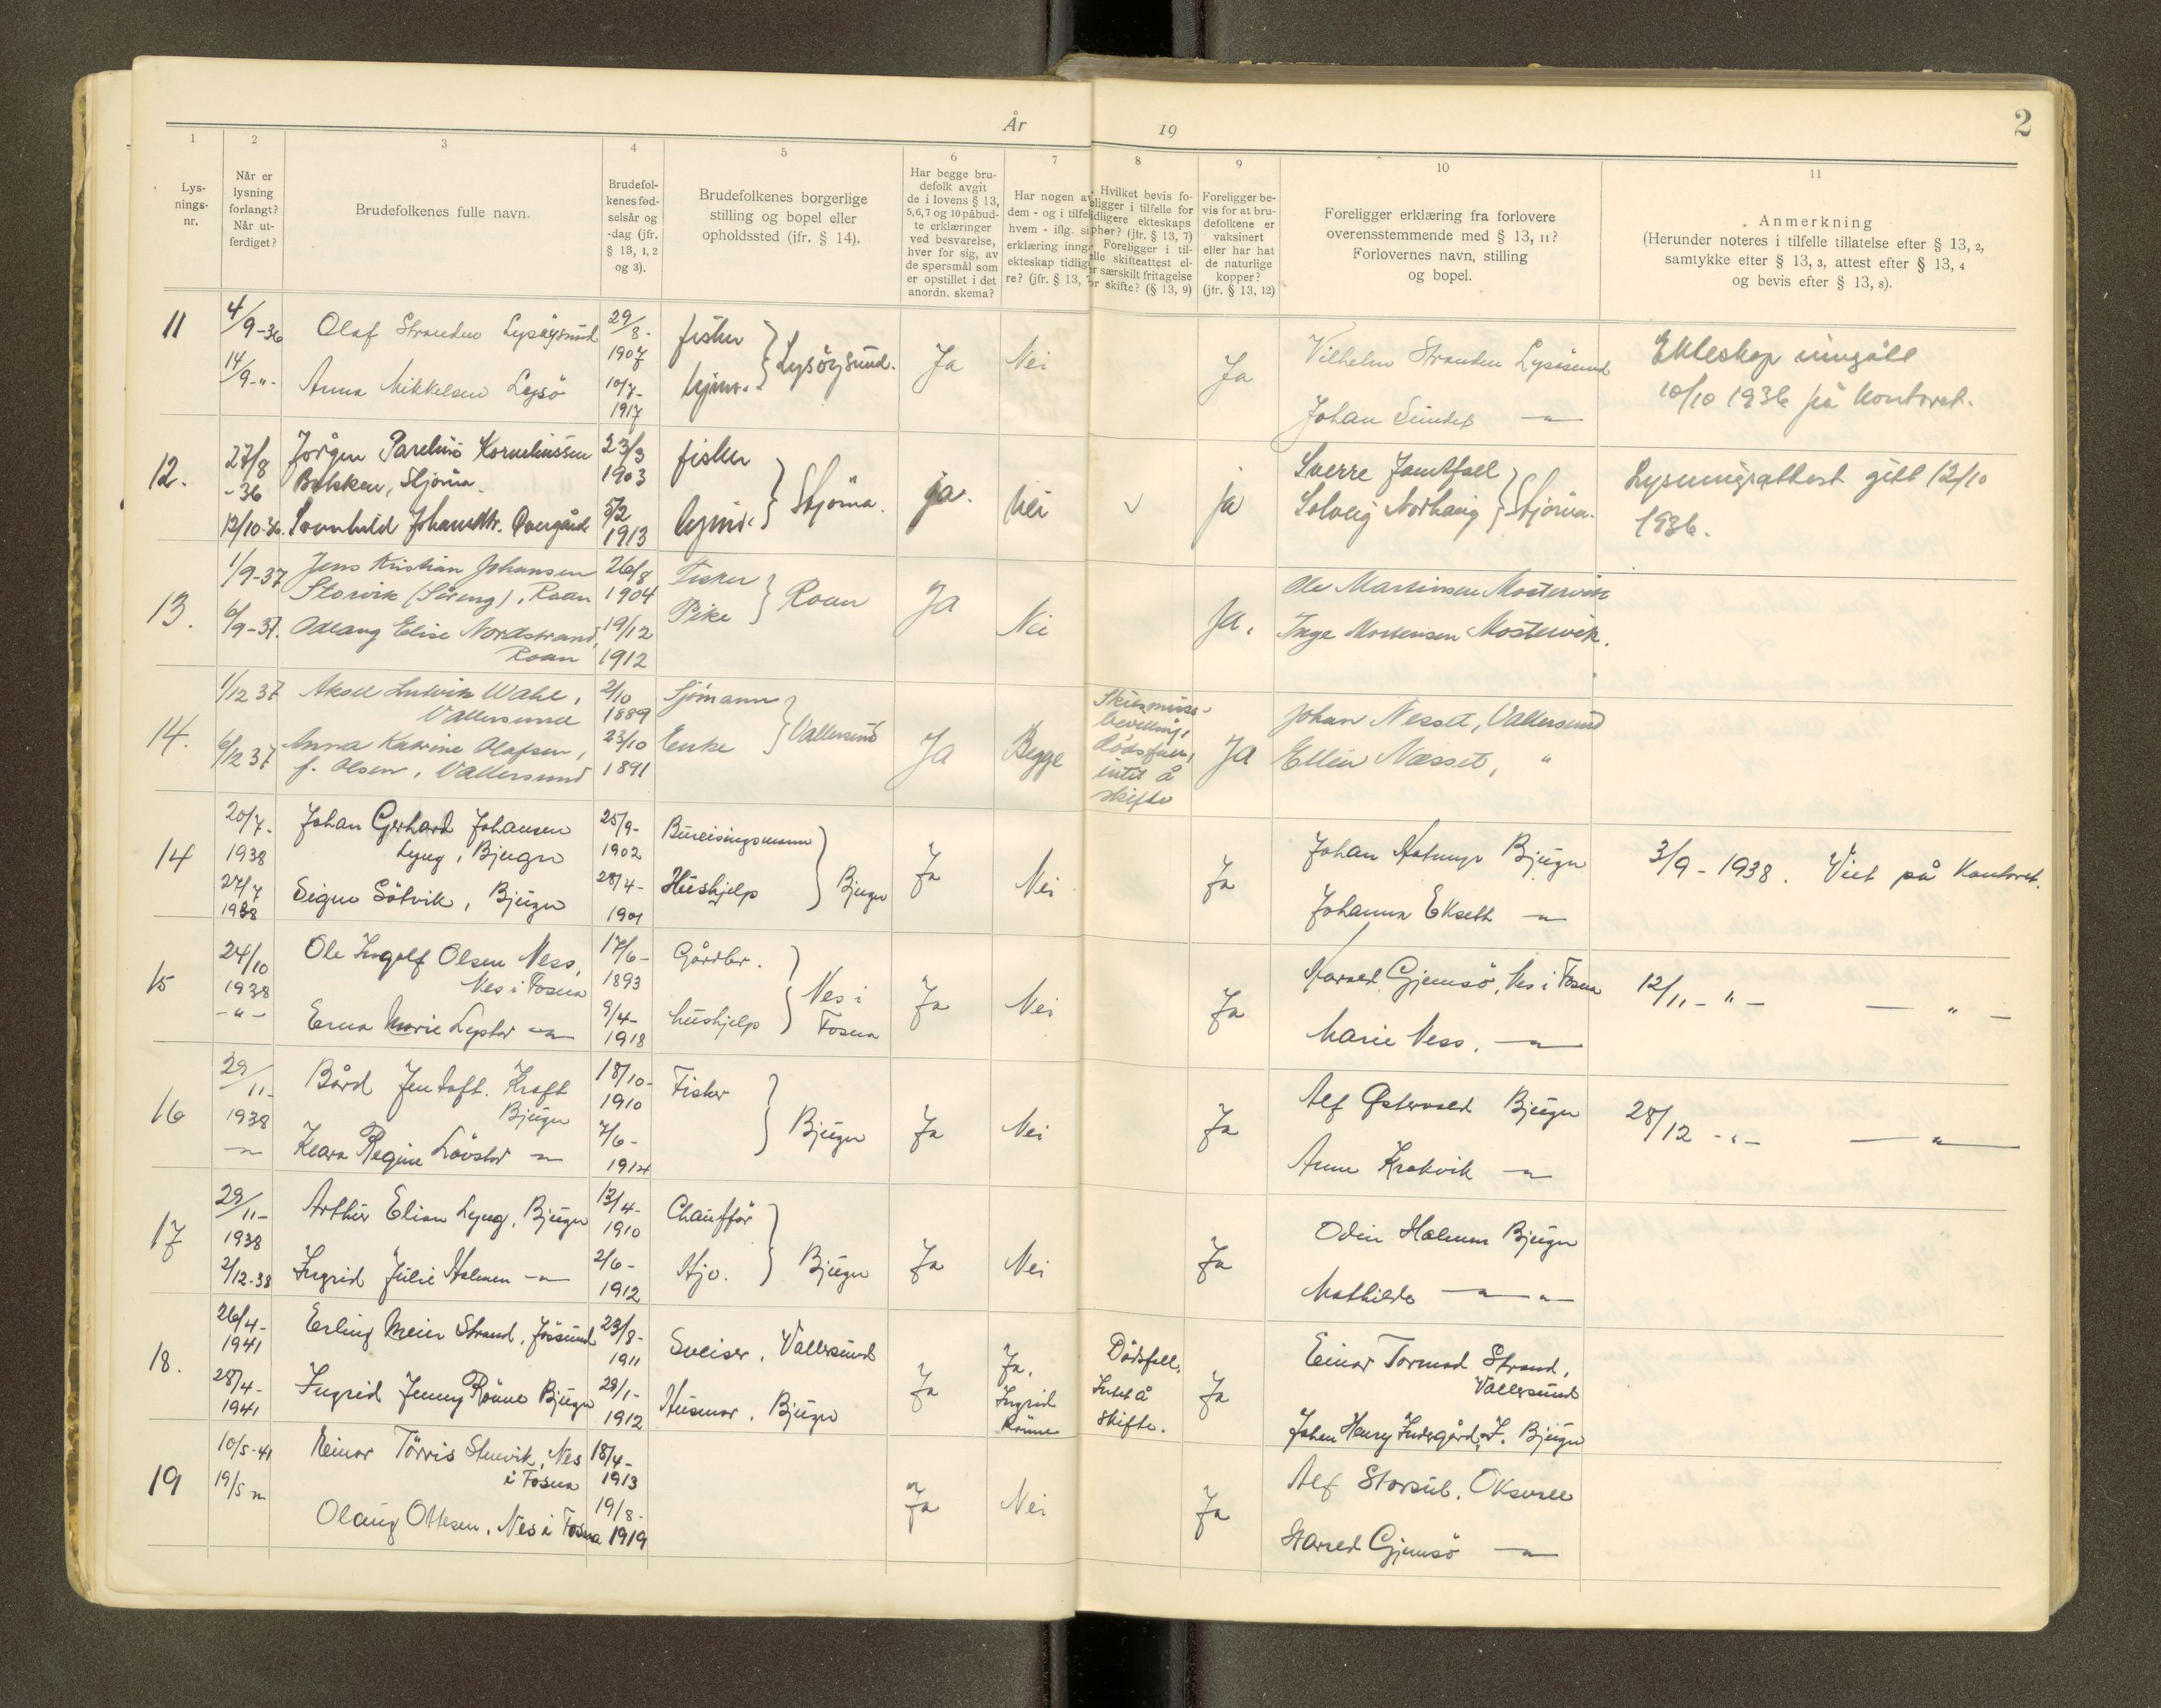 År 19
2
1
Lys-
nings-
nr.
2
Når er
lysning
forlangt?
Når ut-
ferdiget?
3
Brudefolkenes fulle navn.
4
Brudefol-
kenes fød-
selsår og
-dag (jfr.
§ 13, 1, 2
og 3).
5
Brudefolkenes borgerlige
stilling og bopel eller
opholdssted (ifr. § 14).
6
Har begge bru-
defolk avgit
de i lovens § 13,
5,6,7 og 10 påbud-
te erklæringer
ved besvarelse,
hver for sig, av
de spørsmål som
er opstillet i det
anordn. skema?
7
Har nogen av
dem - og i tilfelle
hvem - iflg. si
erklæring inng
ekteskap tidlig
re? (jfr. § 13, 7
8
Hvilket bevis fo-
eligger i tilfelle for
idligere ekteskaps
ophør? (jfr. § 13, 7)
Foreligger i til-
elle skifteattest el-
er særskilt fritagelse
or skifte? (§ 13, 9)
9
Foreligger be-
vis for at bru-
defolkene er
vaksinert
eller har hat
de naturlige
kopper?
(jfr. § 13, 12)
10
Foreligger erklæring fra forlovere
overensstemmende med § 13, 11?
Forlovernes navn, stilling
og bopel.
11
Anmerkning
(Herunder noteres i tilfelle tillatelse efter § 13, 2,
samtykke efter § 13, 3, attest efter § 13, 4
og bevis efter § 13, 8).
11
4/9-36
14/9-"-
Olaf Stranden Lysøysund
Anna Mikkelsen Lysö
29/8-
1907
10/7-
1917
fisker
hjem.
Lysöysund.
Ja
Nei
Ja
Vilhelm Stranden Lysösund
Johan Sundet -"-
Ekteskap inngått
10/10 1936 på kontoret.
12.
27/8
-36
12/10-36.
Jørgen Parelius Korneliussen
Bakken, Stjörna.
Johansdtr. Overgård
23/3
1903
5/2
1913
fisker
hjem.
Stjörna.
ja.
nei
v
ja
Sverre Jamtfall
Solveig Norhaug
Stjörna.
Lysningsattest gitt 12/10
1936.
13.
1/9-37
6/9-37.
Jens Kristian Johansen
Storvik (Söreng), Roan
Odlaug Elise Nordstrand,
Roan
26/8
1904
19/12
1912
Fisker
Pike
Roan
Ja
Nei
Ja.
Ole Martinsen Mostervik
Inge Mortensen Mostervik.
14.
1/12 37
6/12 37
Aksel Ludvik Wahl,
Vallersund
Anna Katrine Olafsen,
f. Olsen, Vallersund
2/10
1889
23/10
1891
Sjömann
Enke
Vallersund
Ja
Begge
Skilsmisse-
bevilling,
dødsfall,
intet å
skifte
Ja
Johan Nesset, Vallersund
Ellen Næsset, "
14
20/7-
1938
27/7
1938
Johan Gerhard Johansen
Lyng, Bjugn
Signe Sötvik, Bjugn
25/9-
1902
28/4-
1901
Bureisingsmann
Hushjelp
Bjugn
Ja
Nei
Ja
Johan Bjugn
Johanna Ekseth -"-
3/9-1938. Viet på Kontoret.
15
24/10
1938
-"-
Ole Ingolf Olsen Ness,
Nes i Fosna
Erna Marie -"-
17/6-
1893
9/4-
1918
Gårdbr.
hushjelp
Nes i
Fosna
Ja
Nei
Ja
Harald Gjemsö, Nes i Fosna
Marie Ness. -"-
12/11-"- -"-
16
29/11-
1938
-"-
Bård Jentoft. Kraft
Bjugn
Klara Regine Lövster -"-
18/10-
1910
7/6-
1914
Fisker
Bjugn
Ja
Nei
Ja
Alf Østervold Bjugn
Anne Krakvik -"-
28/12 -"- -"-
17
29/11-
1938
2/12-38
Arthur Elion Lyng, Bjugn
Ingrid Julie Holmen -"-
13/4-
1910
2/6-
1912
Chauffør
Hjv.
Bjugn
Ja
Nei
Ja
Odin Holmen Bjugn
Mathilde -"- -"-
18.
26/4-
1941
28/4-
1941
Erling Meier Strand, Jössund
Ingrid Jenny Rönne Bjugn
23/8-
1911
29/1-
1912
Sveiser, Vallersund
Husmor, Bjugn
Ja
Ja.
Ingrid
Rönne
Dødsfall.
Intet å
skifte.
Ja
Einar Tormod Strand,
Vallersund
Johan Henry Indergård, Bjugn
19
10/5-41
19/5 -"-
Reinor Törris Stuevik, Nes
i Fosna
Olaug Ottesen, Nes i Fosna
18/4-
1913
19/8-
1919
Ja
Nei
Ja
Alf Storsul. Oksvoll
Harald Gjemsö -"-